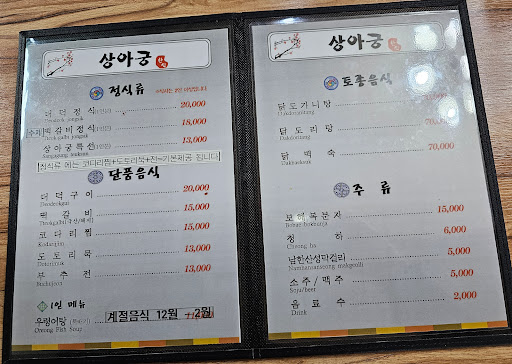 상아궁
정식류
더덕정식(1인분) 20,000
Deodeok jungsik
수제떡갈비정식(1인분) 18,000
Tteok galbi jungsik
상아궁특선(1인분) 13,000
Sangagung teukseon
정식류 에는 코다리찜+도토리묵+전=기본제공 됩니다
단품음식
더덕구이 20,000
Deodeokgui
떡갈비 15,000
코다리찜 15,000
Kodarijjim
도토리묵 13,000
Dotorimuk
부추전 13,000
Buchujeon
1일 메뉴
우렁어탕
Oreong Fish Soup
계절음식 12월 ~2월
상아궁
토종음식
닭도가니탕
닭도리탕
Dakdoritang
70,000
닭백숙 70,000
Dakbaeksuk
주류
보해복분자 15,000
Bohae bokbunja
청하 6,000
Cheong ha
남한산성막걸리 5,000
Namhansanseong makgeolli
소주/맥주 5,000
Soju/beer
음료수 2,000
Drink